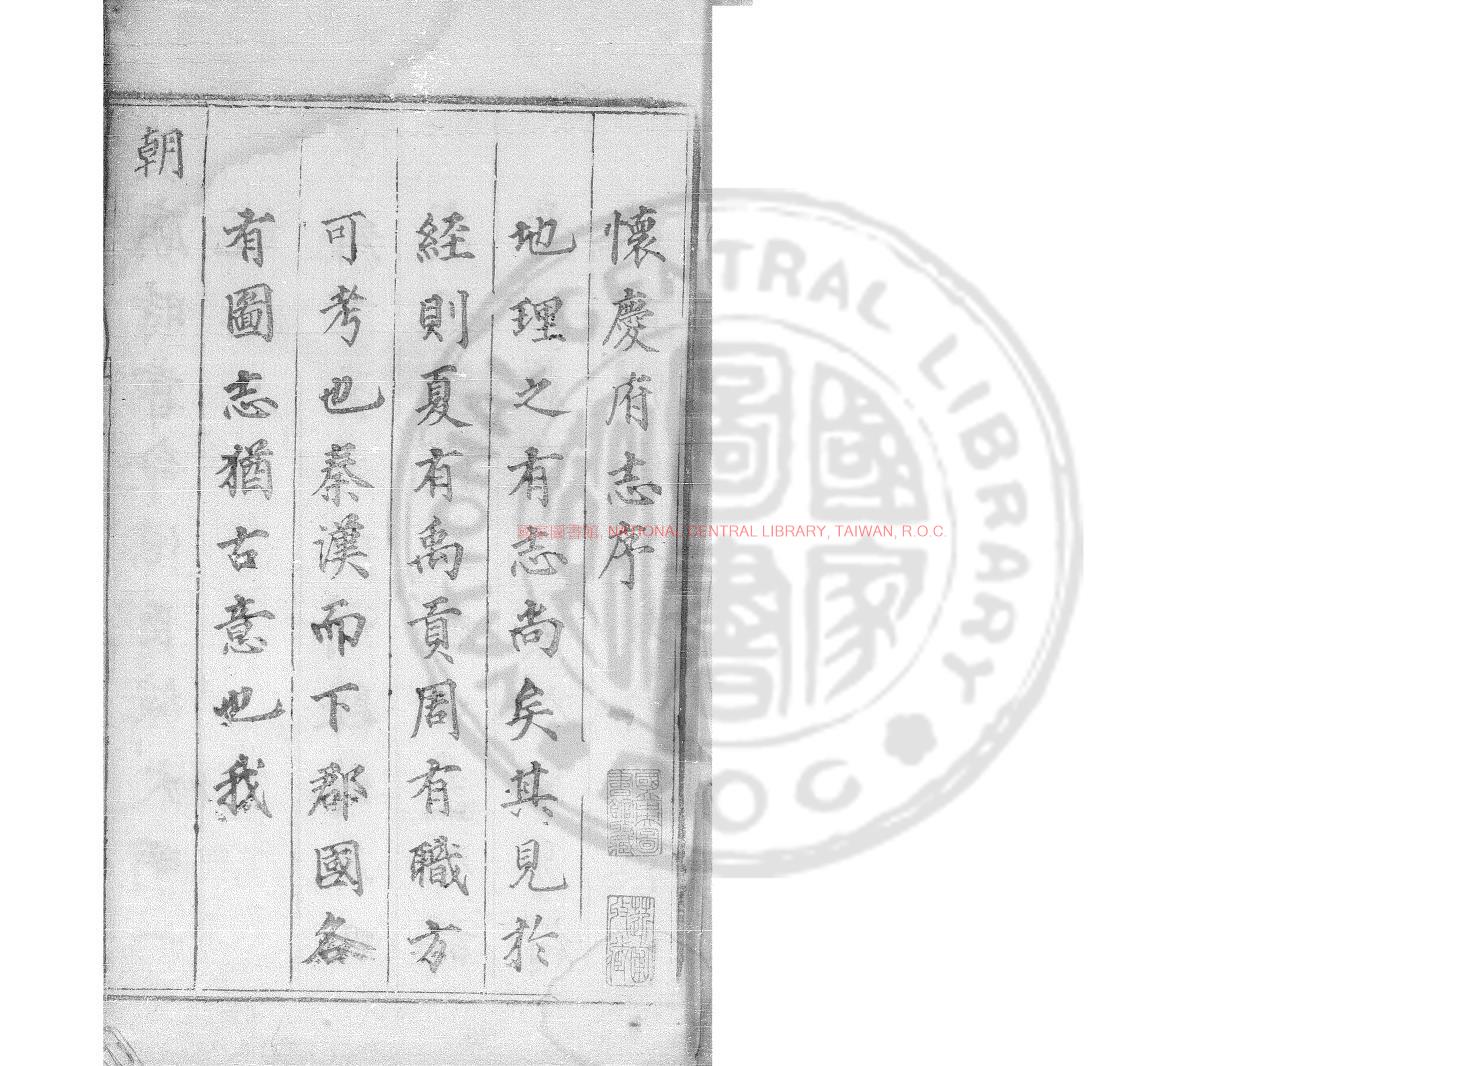 懷慶府志序
地理之有志尚矣其見於
経則夏有禹貢周有職方
可考也秦漢而下郡國各
有圖志猶古意也我
朝
國家圖書館, NATIONAL CENTRAL LIBRARY, TAIWAN, R.O.C.